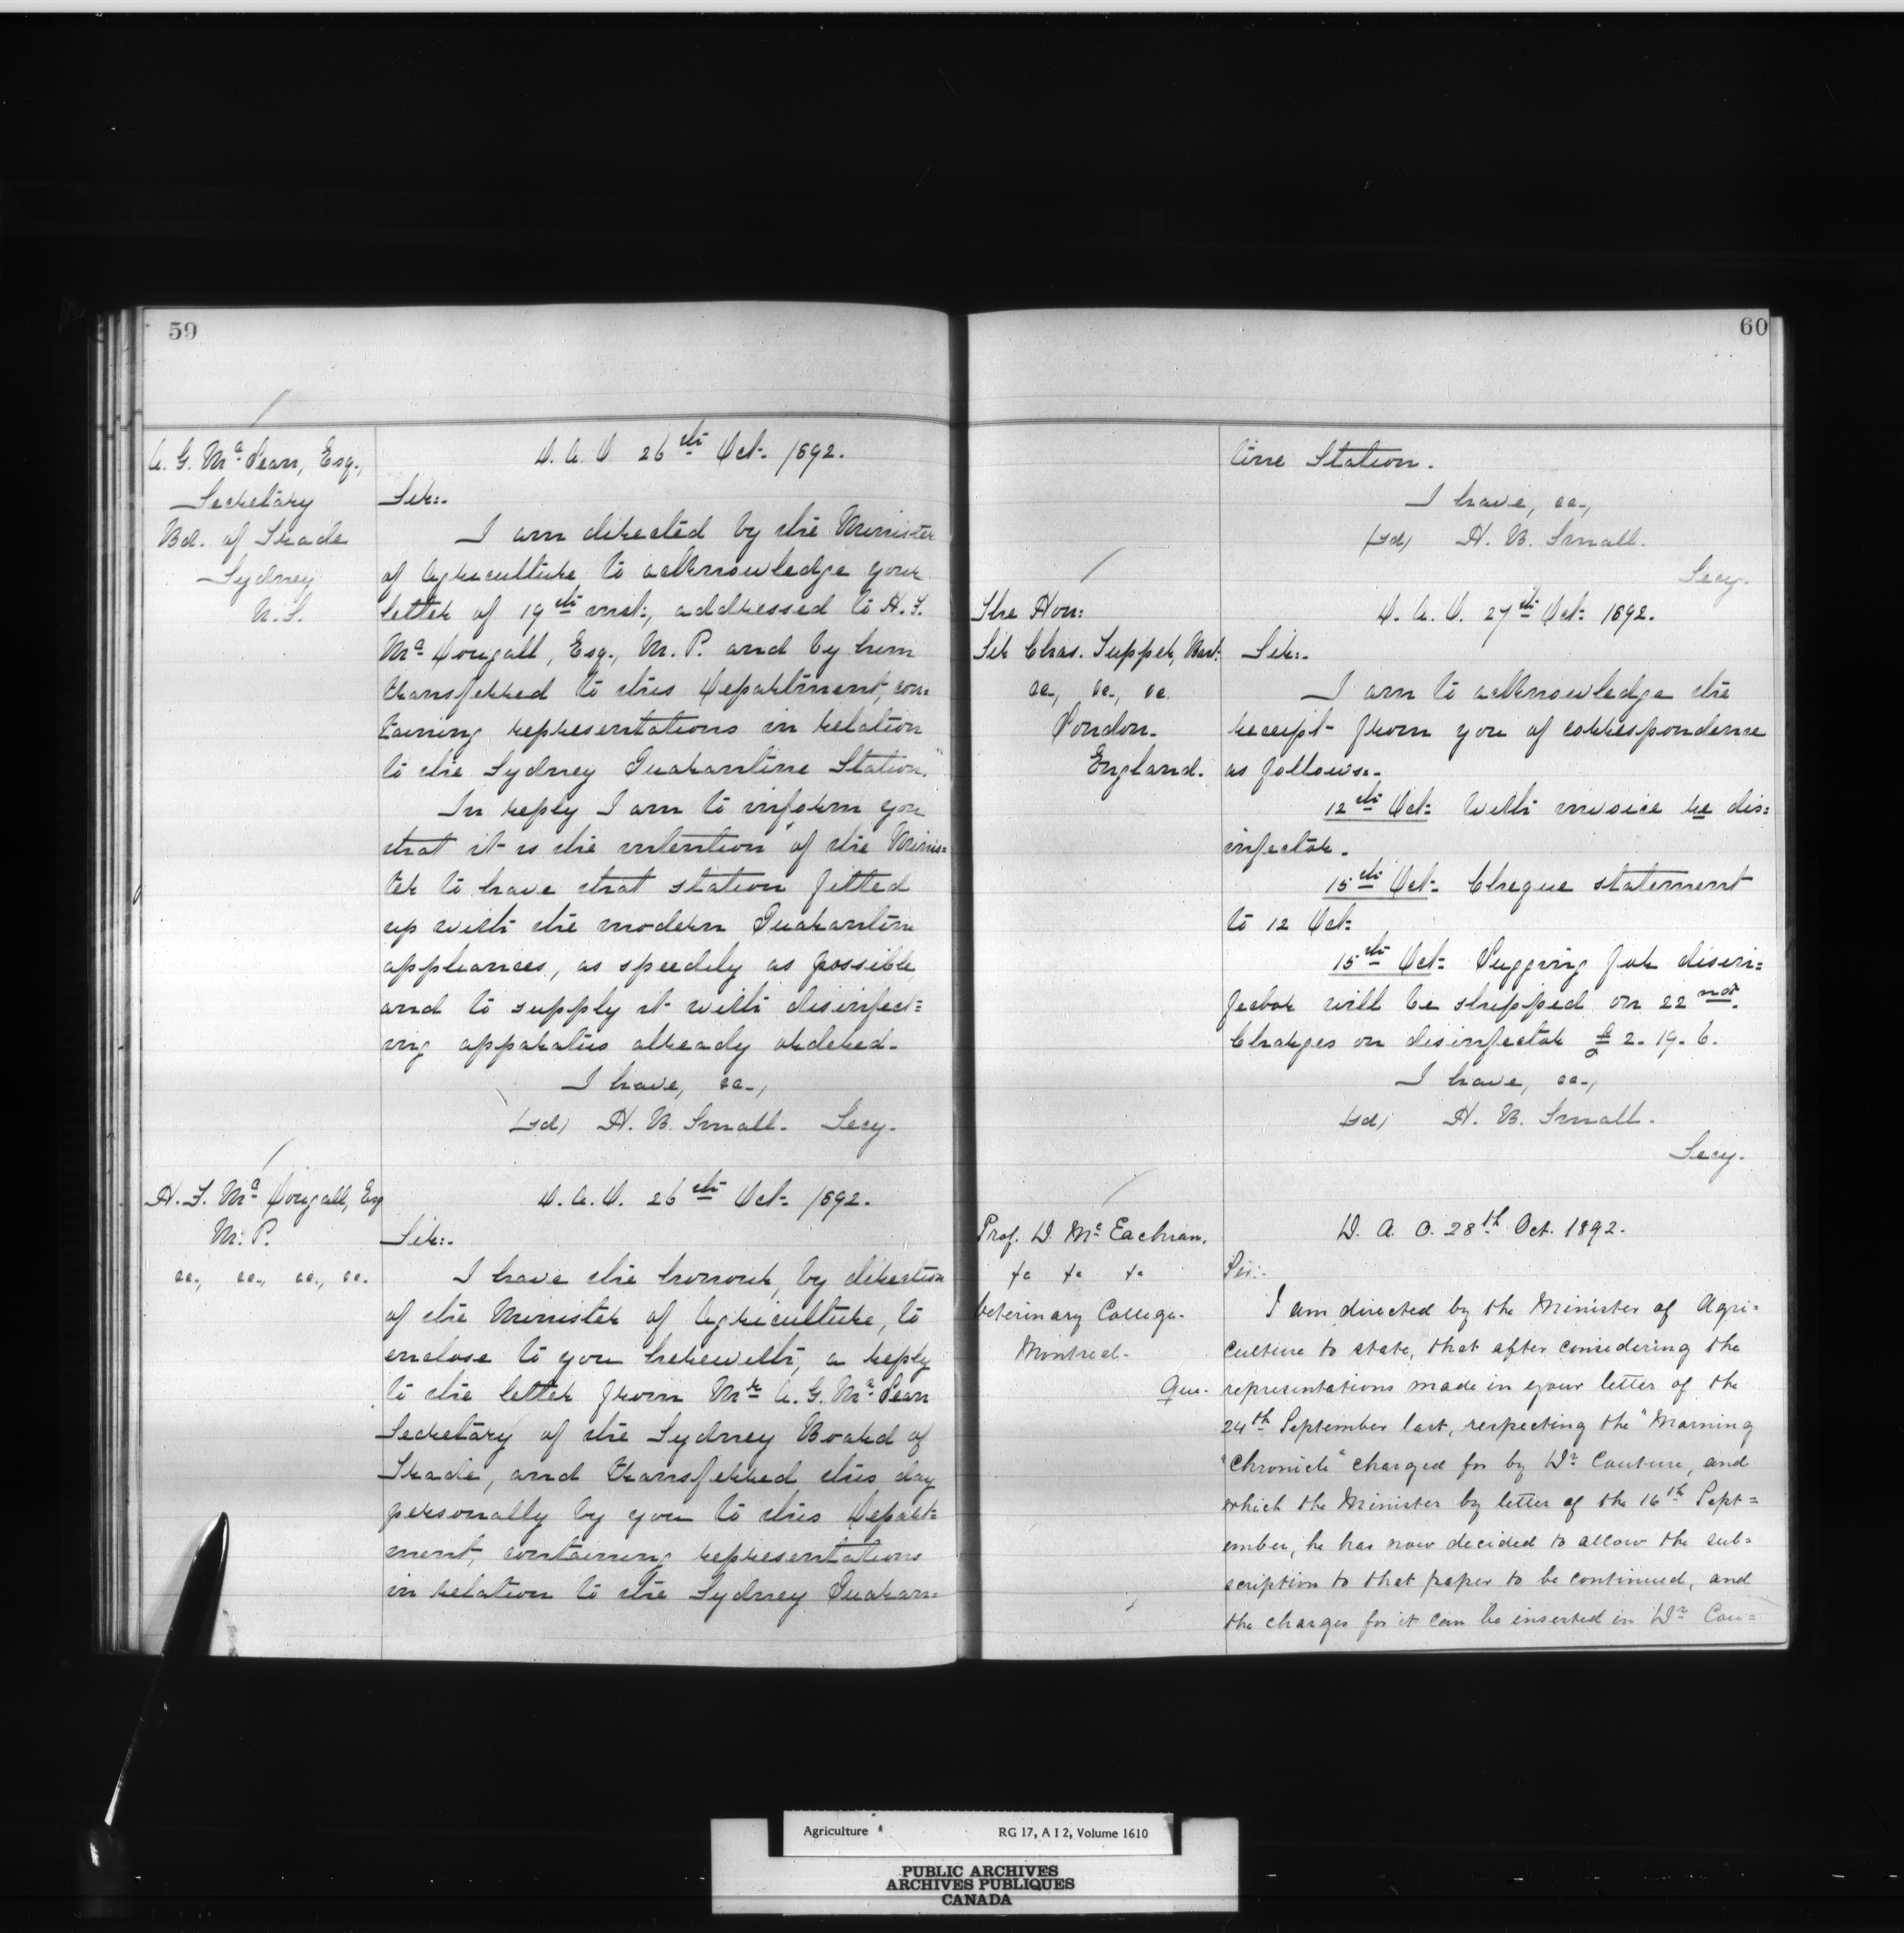 59
A. G. McLean, Esq.,
Secretary
Bd. of Trade
Sydney
N. S.
D. A. O. 26th Oct. 1892.
Sir:-
I am directed by the Minister
of Agriculture, to acknowledge your
letter of 19th inst:, addressed to H. F.
McDougall, Esq., M. P. and by him
transferred to this Department, con=
taining representations in relation
to the Sydney Quarantine Station.
In reply I am to inform you
that it is the intention of the Minis=
ter to have that station fitted
up with the modern Quarantine
appliances, as speedily as possible
and to supply it with disinfect=
ing apparatus already ordered.
I have, &c.,
(sd) H. B. Small. Secy.
H. F. McDougall, Esq
M. P.
&c., &c., &c., &c.
D. A. O. 26th Oct. 1892.
Sir:-
I have the honour, by direction
of the Minister of Agriculture, to
enclose to you herewith, a reply
to the letter from Mr A. G. McLean
Secretary of the Sydney Board of
Trade, and transferred this day
personally by you to this Depart=
ment, containing representations
in relation to the Sydney Quaran=
60
tine Station.
I have, &c.,
(sd) H. B. Small.
Secy.
The Hon:
Sir Chas. Tupper, Bart.
&c., &c., &c.
London.
England.
D. A. O. 27th Oct: 1892.
Sir:-
I am to acknowledge the
receipt from you of correspondence
as follows:-
12th Oct: With invoice re dis=
infector.
15th Oct: Cheque statement
to 12 Oct:
15th Oct: Lugging for disin=
fector will be shipped on 22nd.
Charges on disinfector £2. 19. 6.
I have, &c.,
(sd) H. B. Small.
Secy.
Prof. D. McEachran,
&c &c &c
Veterinary College.
Montreal.
Que.
D. A. O. 28th Oct. 1892.
Sir:-
I am directed by the Minister of Agri=
culture to state, that after considering the
representations made in your letter of the
24th September last, respecting the "Morning
"Chronicle" charged for by Dr Couture, and
which the Minister by letter of the 16th Sept=
ember, he has now decided to allow the sub=
scription to that paper to be continued, and
the charges for it can be inserted in Dr Cou=
Agriculture RG 17, A I 2, Volume 1610
PUBLIC ARCHIVES
ARCHIVES PUBLIQUES
CANADA